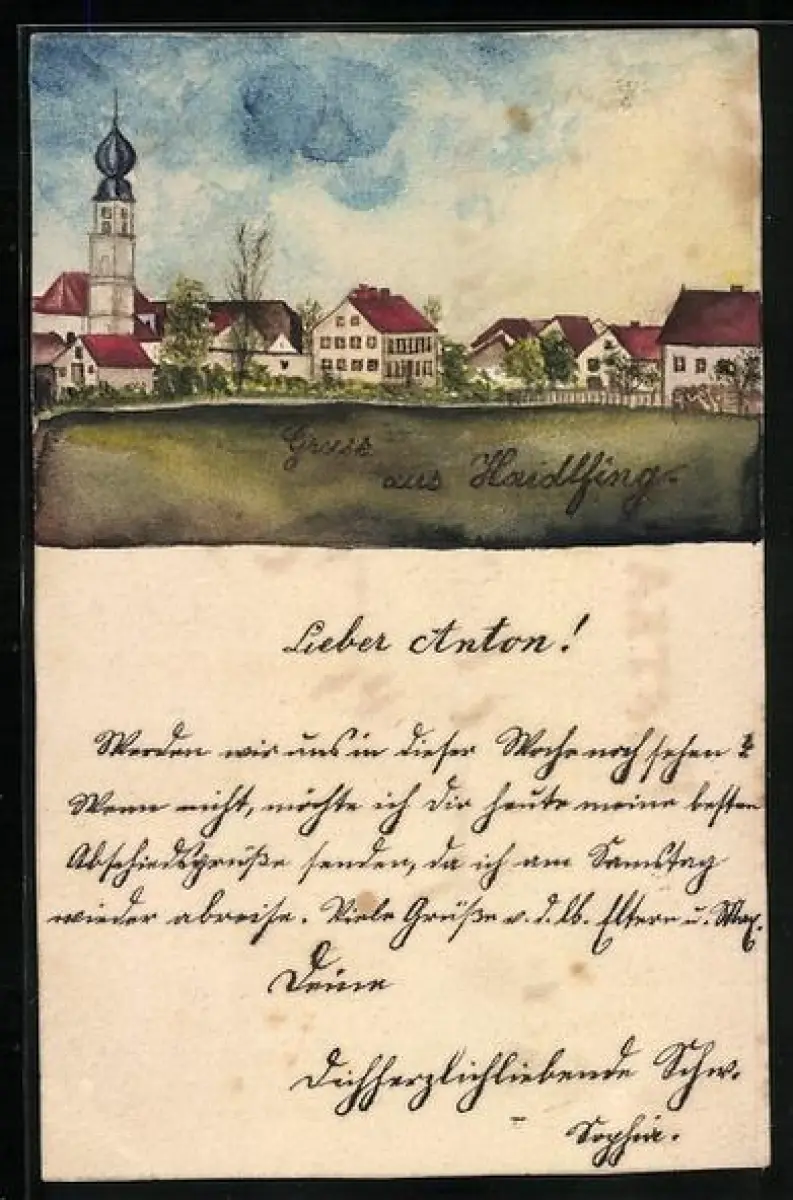 Gruss
aus Haidlfing.
Lieber Anton!
Werden wir uns in dieser Woche noch sehen?
Wenn nicht, möchte ich Dir heute meine besten
Abschiedsgrüße senden, da ich am Samstag
wieder abreise. Viele Grüße v. d. lb. Eltern u. Max.
Deine
Dichherzlichliebende Schw.
Sophie.